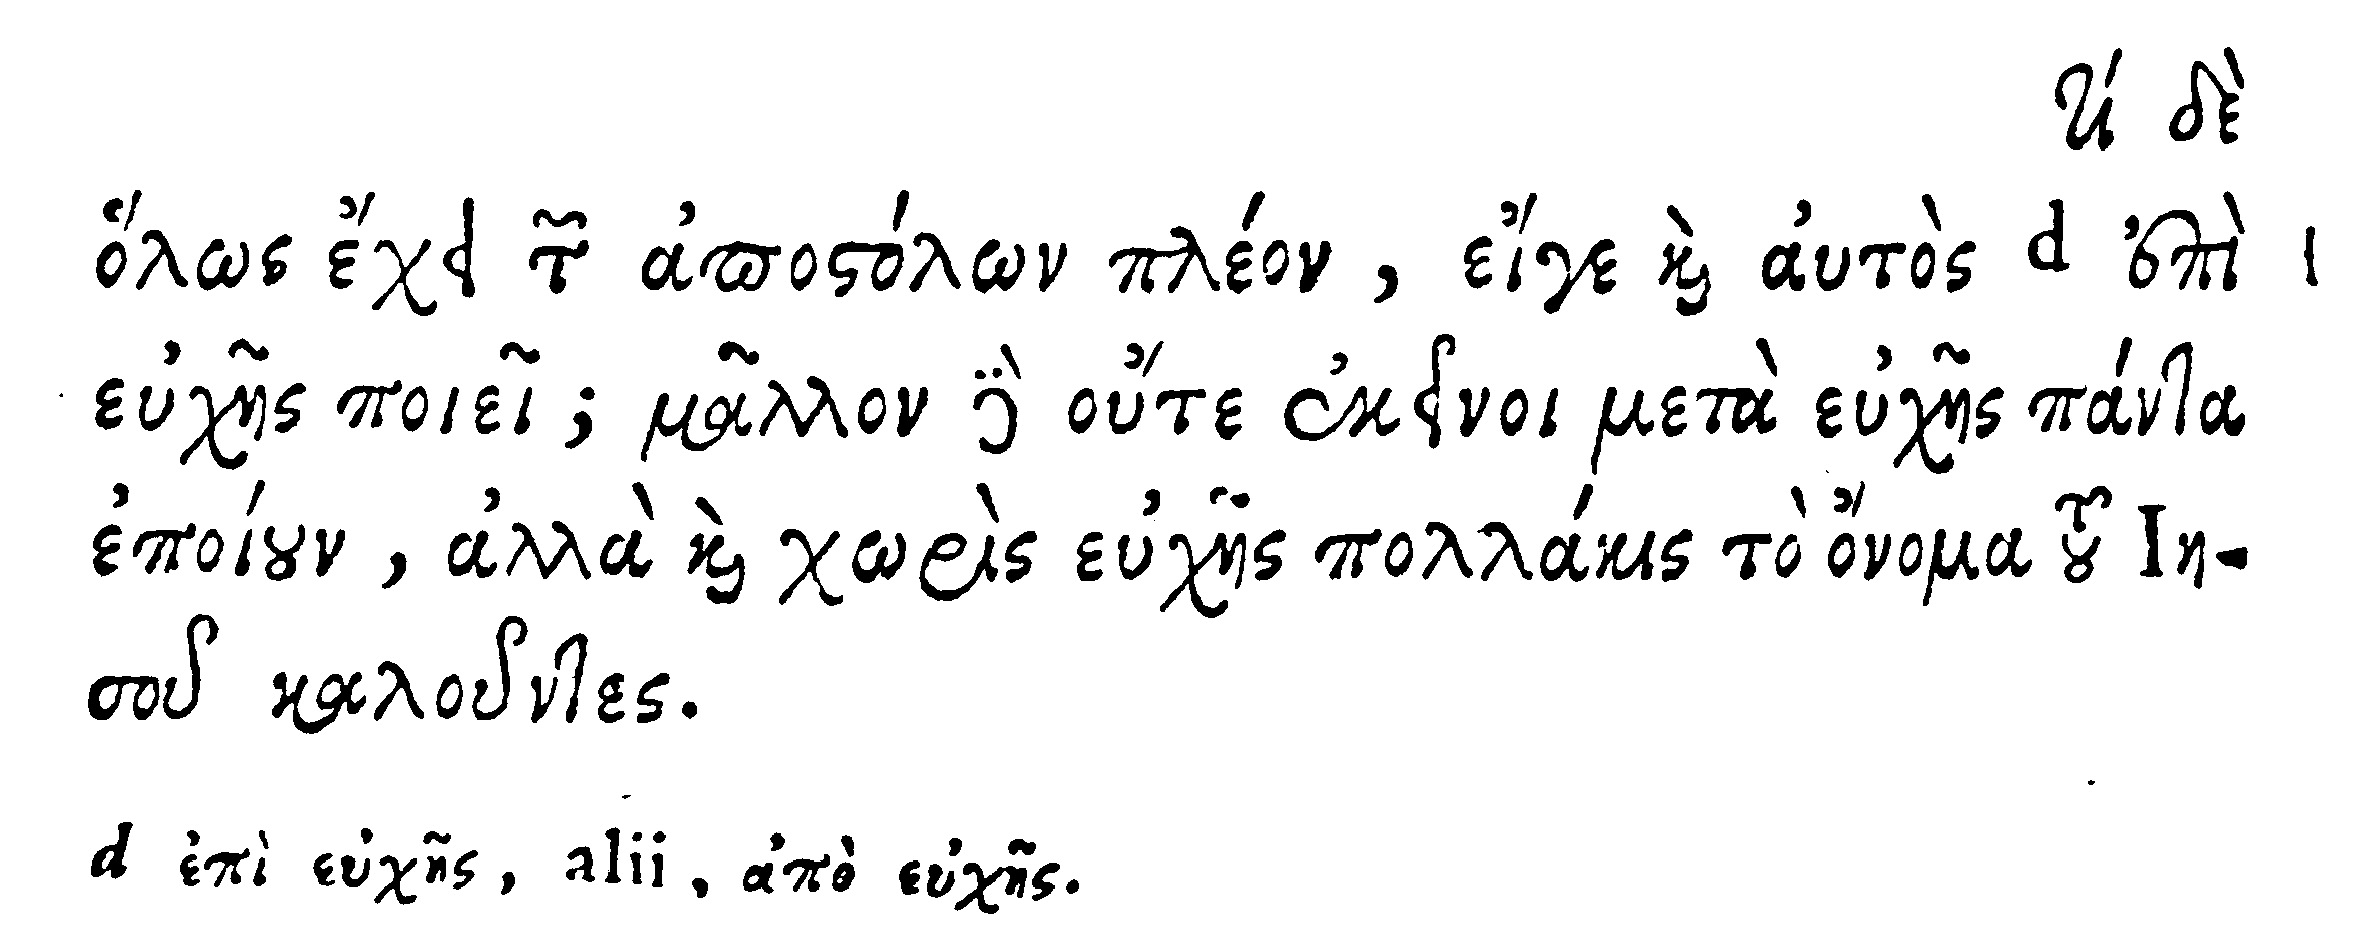 Τί δὲ
ὅλως ἔχει τῶν ἀποστόλων πλέον, εἴγε καὶ ἀυτὸς d ἐπὶ
εὐχῆς ποιεῖ; μᾶλλον δὲ οὔτε ἐκεῖνοι μετὰ εὐχῆς πάντα
ἐποίουν, ἀλλὰ καὶ χωρὶς εὐχῆς πολλάκις τὸ ὄνομα τοῦ Ιη-
σοῦ καλοῦντες.
d ἐπὶ εὐχῆς, alii, ἀπὸ εὐχῆς.